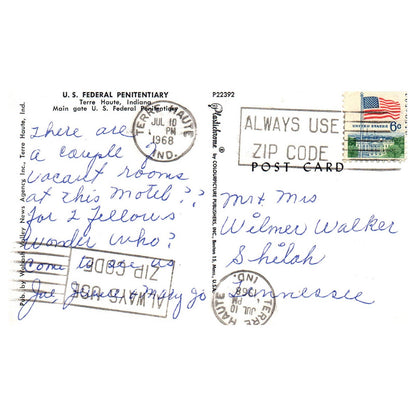 U. S. FEDERAL PENITENTIARY
Terre Haute, Indiana
Main gate U. S. Federal Penitentiary
There are
a couple of
vacant rooms
at this Motel??
for 2 fellows
wonder who?
Come to see us
Joe, & Mary Jo
Pub. by Wabash Valley News Agency, Inc., Terre Haute, Ind.
TERRE HAUTE
JUL 10
PM
1968
IND.
P22392
Plastichrome ® by COLOURPICTURE PUBLISHERS, INC., Boston 15, Mass., U.S.A.
ALWAYS USE
ZIP CODE
UNITED STATES
6c
POST CARD
Mr & Mrs
Wilmer Walker
Shiloh
Tennessee
ALWAYS USE
ZIP CODE
TERRE HAUTE
JUL 10
PM
1968
IND.